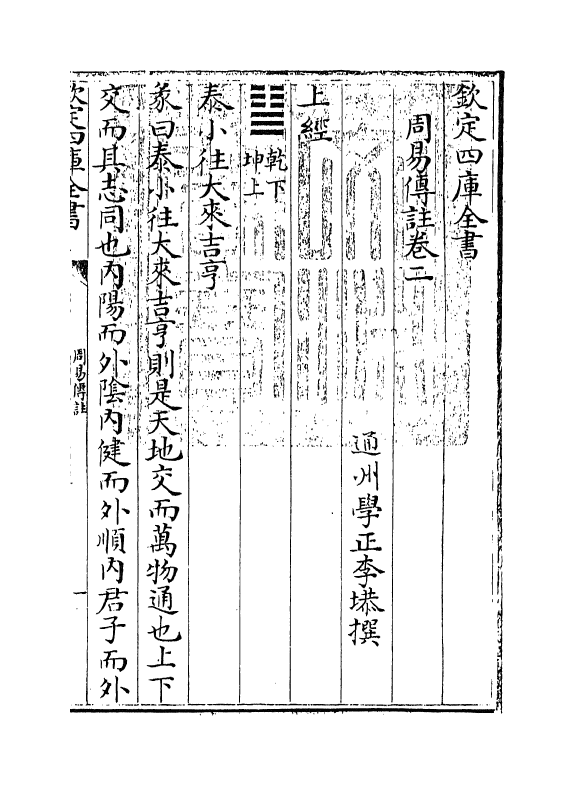 欽定四庫全書
周易傳註卷二
通州學正李塨撰
上經
䷊乾下坤上
泰小往大來吉亨
彖曰泰小往大來吉亨則是天地交而萬物通也上下
交而其志同也內陽而外陰內健而外順內君子而外
欽定四庫全書
周易傳註
一